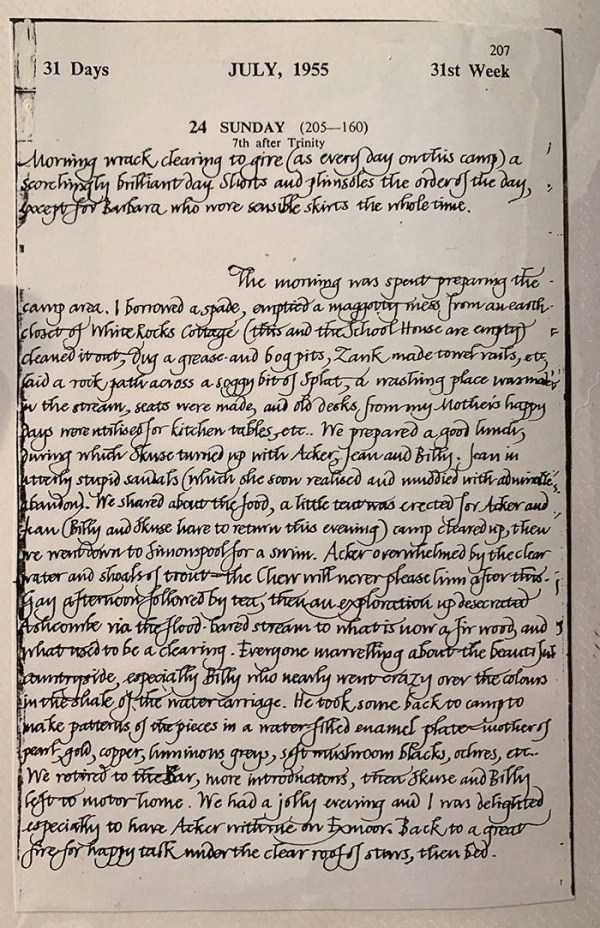 207
31 Days JULY, 1955 31st Week
24 SUNDAY (205—160)
7th after Trinity
Morning wrack clearing to give (as every day on this camp) a
scorchingly brilliant day. Shorts and plimsoles the order of the day,
except for Barbara who wore sensible skirts the whole time.
The morning was spent preparing the
camp area. I borrowed a spade, emptied a maggotty mess from an earth
closet of White Rocks Cottage (this and the School House are empty)
cleaned it out, dug a grease- and bog pits, Zank made towel rails, etc,
laid a rock path across a soggy bit of Splat, a washing place was
in the stream, seats were made, and old desks from my Mother's happy
days were utilised for kitchen tables, etc.. We prepared a good lunch,
during which Skuse turned up with Acker, Jean and Billy. Jean in
utterly stupid sandals (which she soon realised and muddied with admirable
abandon). We shared about the food, a little tent was erected for Acker and
Jean (Billy and Skuse have to return this evening) camp cleared up, then
we went down to Simonspool for a swim. Acker overwhelmed by the clear
water and shoals of trout - the Chew will never please him after this.
Gay afternoon followed by tea, then an exploration up desecrated
Ashcombe via the flood-bared stream to what is now a fir wood, and
what used to be a clearing. Everyone marvelling about the beautiful
countryside, especially Billy who nearly went crazy over the colours
in the shale of the water carriage. He took some back to camp to
make patterns of the pieces in a water-filled enamel plate - mother of
pearl, gold, copper, luminous greys, soft mushroom blacks, ochres, etc..
We retired to the Bar, more introductions, then Skuse and Billy
left to motor home. We had a jolly evening and I was delighted
especially to have Acker with me on Exmoor. Back to a great
fire for happy talk under the clear roof of stars, then bed.